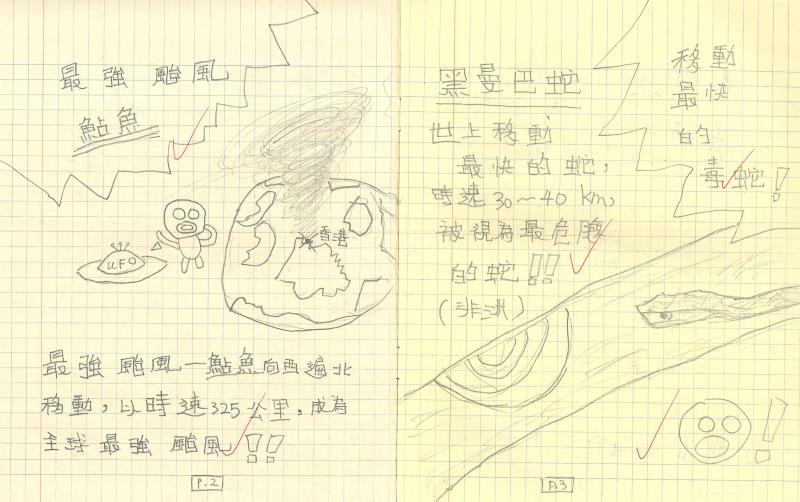 最強颱風
鮎魚
UFO
香港
最強颱風—鮎魚向西遍北
移動，以時速325公里，成為
全球最強颱風!!
P.2
移動
最快
的
毒蛇！
黑曼巴蛇
世上移動
最快的蛇，
時速30～40 km，
被視為最危險
的蛇!!
(非洲)
!
P.3